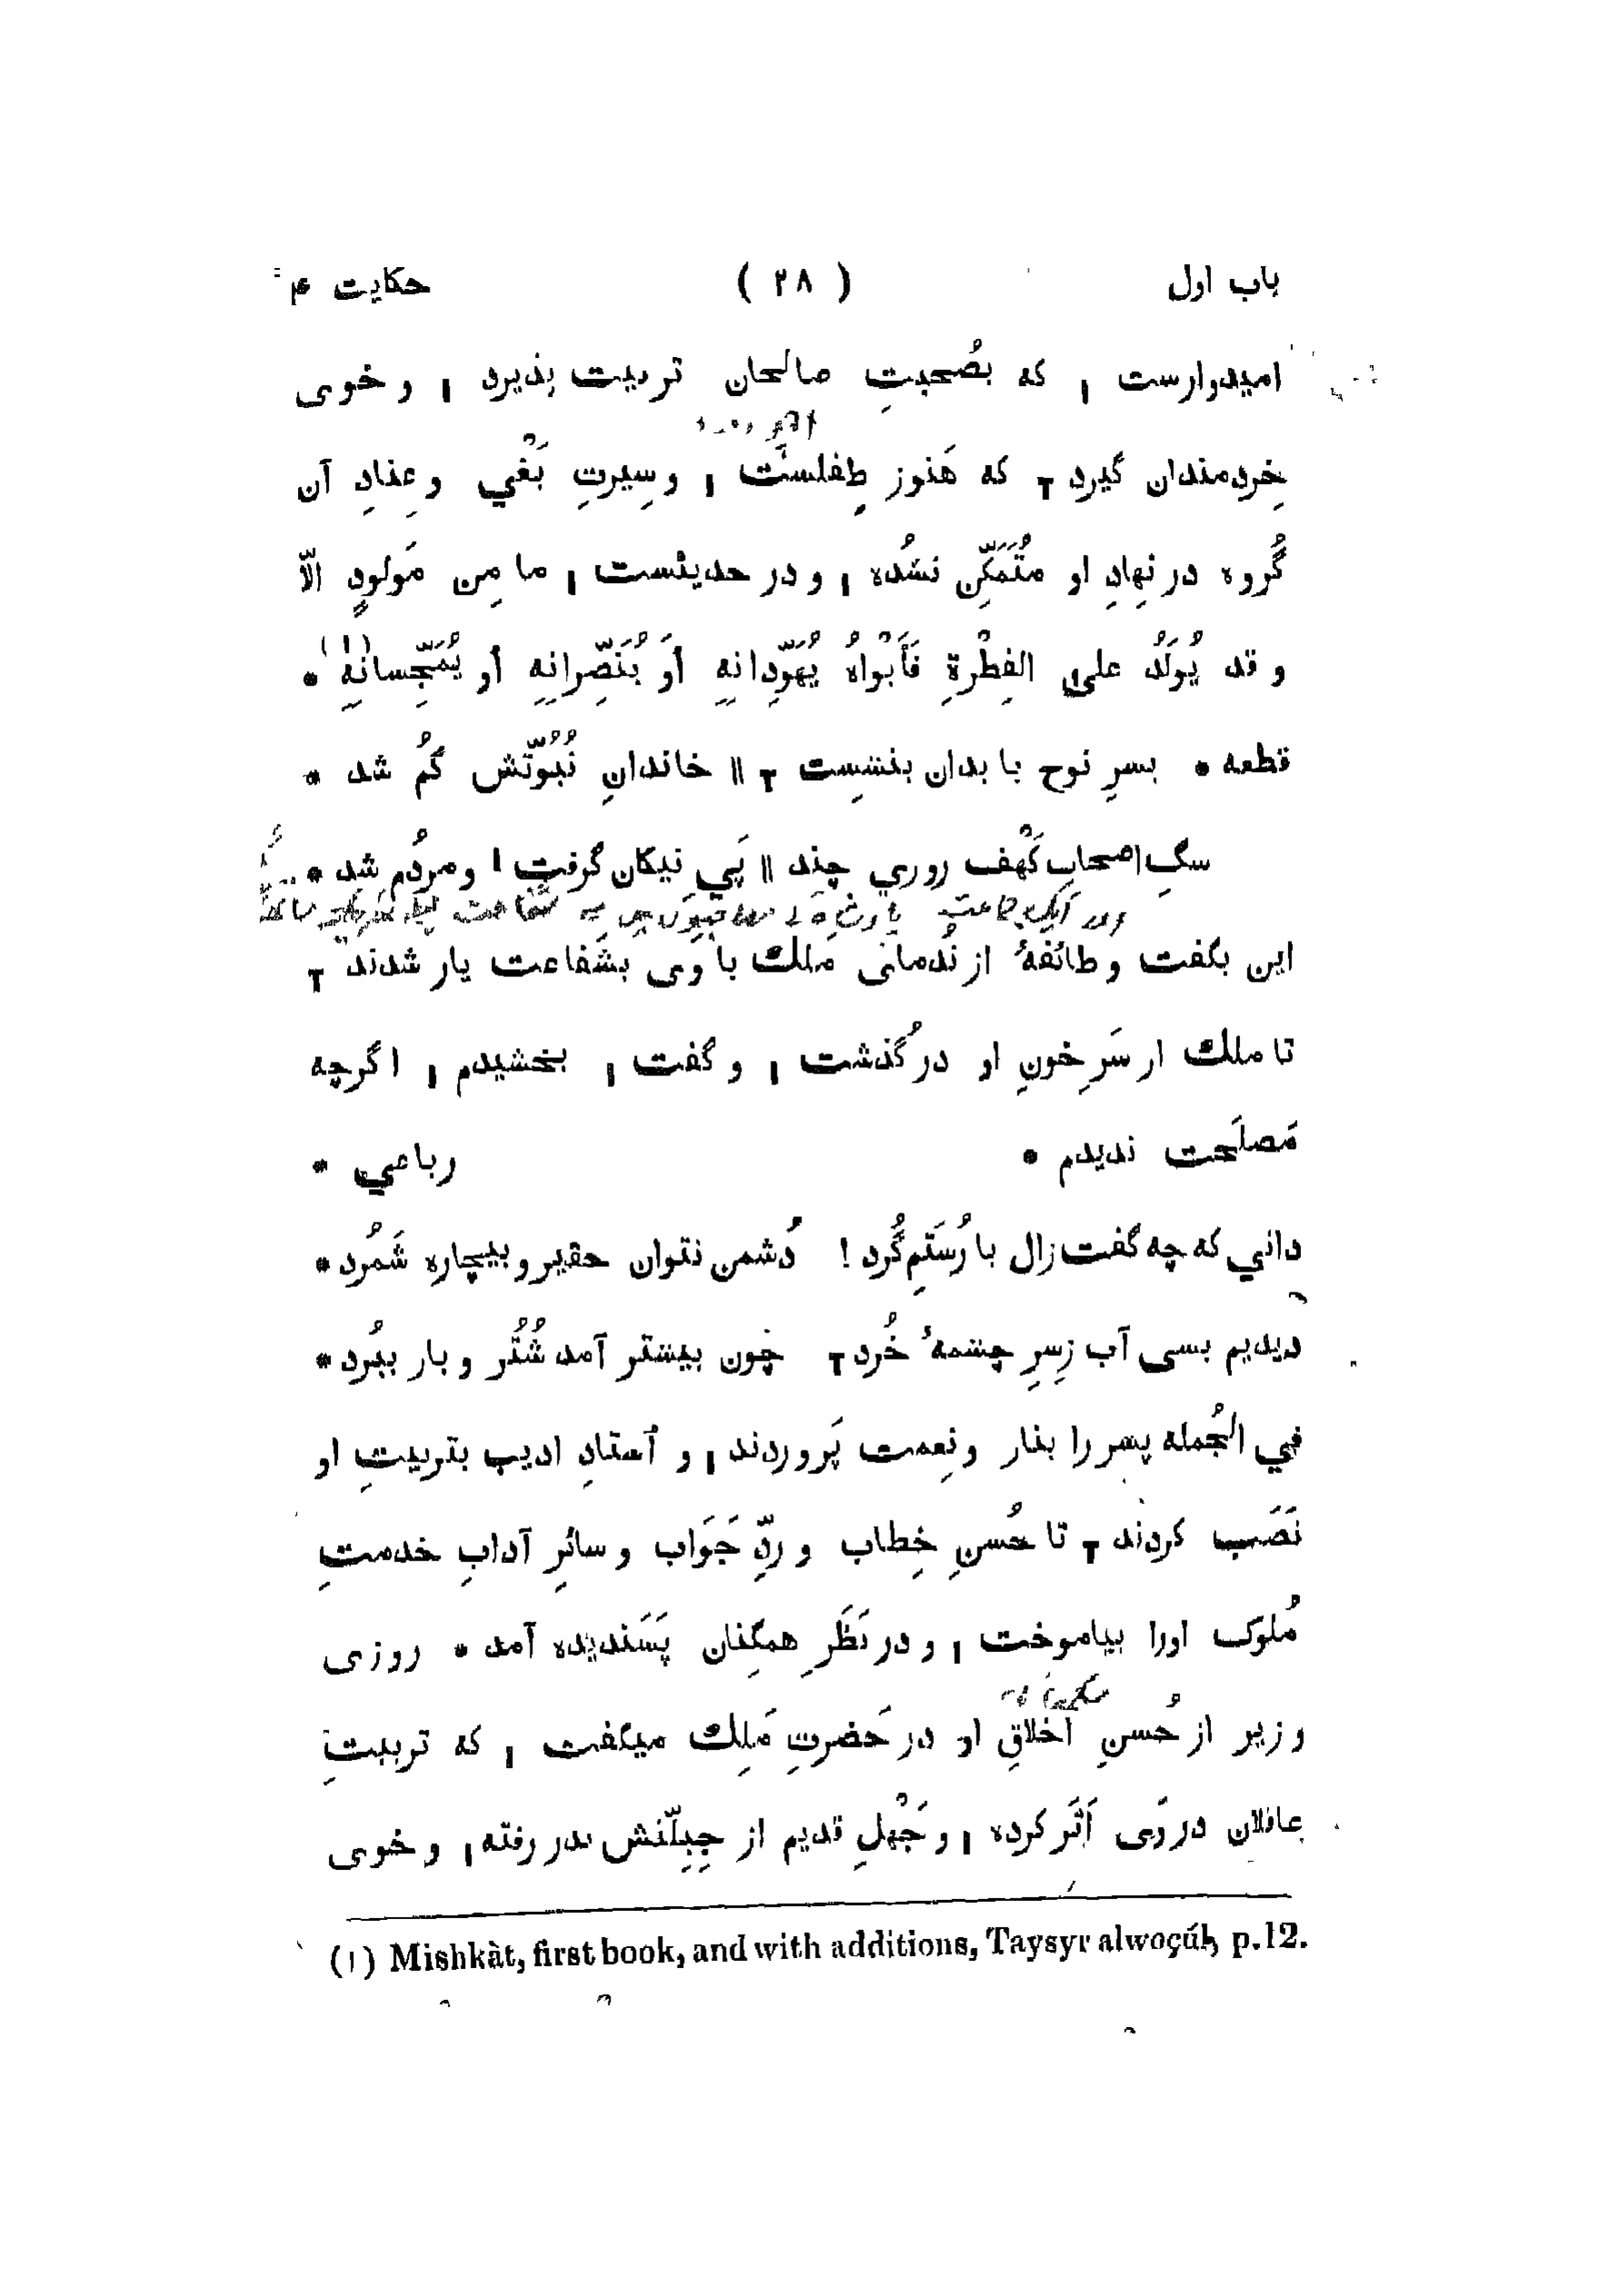 باب اول ( ۲۸ ) حکایت ۴
امیدوارست ۱ که بصُحبتِ صالحان تربیت پذیرد ۱ و خوی
خِردمندان گیرد ۲ که هَنوز طِفلست ۱ و سِیرتِ بَغْي و عِنادِ آن
گُروه در نِهادِ او مُتَمَکِّن نشُده ۱ و در حدیثست ۱ ما مِن مَولودٍ الّا
و قد یُولَدُ علی الفِطْرةِ فَأَبْواهُ یُهَوِّدانِهِ أَو یُنَصِّرانِهِ أو یُمَجِّسانِهِ (۱) *
قطعه * پسرِ نوح با بدان بنشِست ۲ || خاندانِ نُبُوّتُش گُم شد *
سگِ اصحابِ کَهْف روزي چند || پَيِ نیکان گرفت ۱ و مردُم شد *
این بگفت و طائفهٔ از نُدمائی مَلک با وَی بشَفاعت یار شدند ۲
تا ملک از سَرِ خونِ او در گُذشت ۱ و گفت ۱ بخشیدم ۱ اگرچه
مَصلَحت ندیدم * رباعي *
داني که چه گفت زال با رُستَمِ گُرد ! دُشمن نتوان حقیر و بیچاره شَمُرد *
دیدیم بسی آب زِسرِ چشمهٔ خُرد ۲ چون بیشتر آمد شُتُر و بار ببُرد *
في الجُمله پسر را بناز و نِعمت پَروردند ۱ و اُستادِ ادیب بتربیتِ او
نَصَب کردند ۲ تا حُسنِ خِطاب و ردِّ جَوَاب و سائرِ آدابِ خدمتِ
مُلوک اورا بیاموخت ۱ و در نَظَرِ همگِنان پَسَندیده آمد * روزی
وزیر از حُسنِ اَخلاقِ او در حَضرتِ مَلِک میگفت ۱ که تربیتِ
عاقلان در وَی اَثَر کرده ۱ و جَهْلِ قدیم از جِبِلّتش بدر رفته ۱ و خوی
(۱) Mishkàt, first book, and with additions, Taysyr alwoçúḥ p.12.